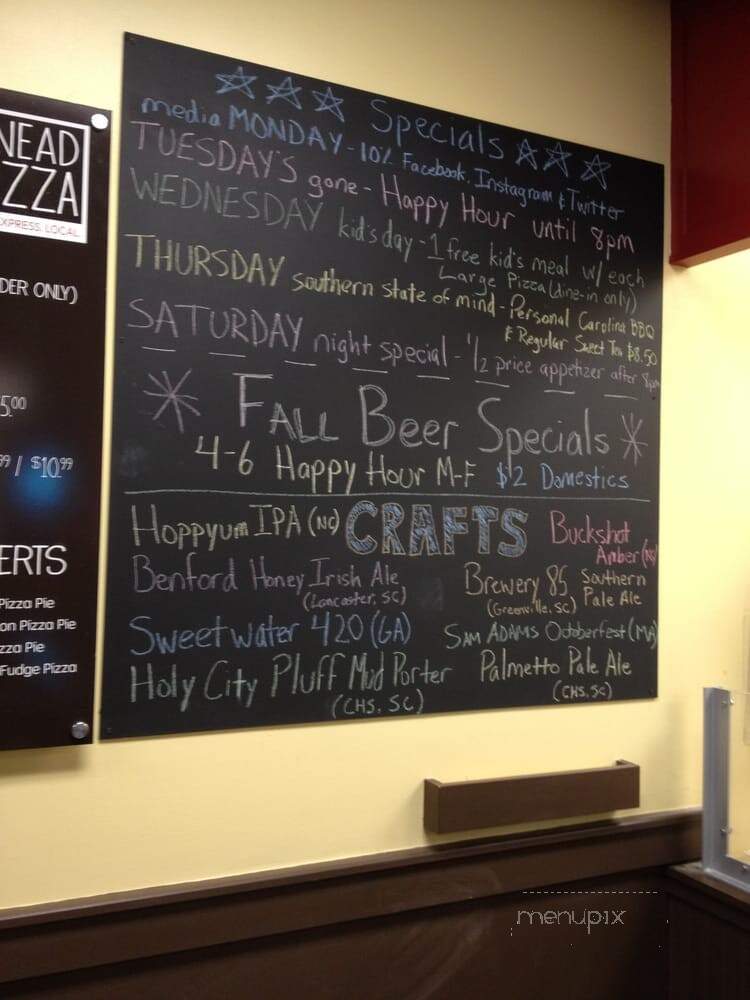 NEAD
ZZA
EXPRESS. LOCAL.
DER ONLY)
5.00
99 / $10.99
ERTS
Pizza Pie
on Pizza Pie
zza Pie
Fudge Pizza
Specials
media MONDAY - 10% Facebook, Instagram & Twitter
TUESDAY'S gone - Happy Hour until 8pm
WEDNESDAY kid's day - 1 free kid's meal w/ each
Large Pizza (dine-in only)
THURSDAY southern state of mind - Personal Carolina BBQ
& Regular Sweet Tea $8.50
SATURDAY night special - 1/2 price appetizer after 8pm
FALL Beer Specials
4-6 Happy Hour M-F $2 Domestics
CRAFTS
Hoppyum IPA (NC)
Buckshot
Amber (NC)
Benford Honey Irish Ale
(Lancaster, SC)
Brewery 85 Southern
(Greenville, SC) Pale Ale
Sweetwater 420 (GA)
SAM ADAMS Octoberfest (MA)
Holy City Pluff Mud Porter
(CHS, SC)
Palmetto Pale Ale
(CHS, SC)
menupix